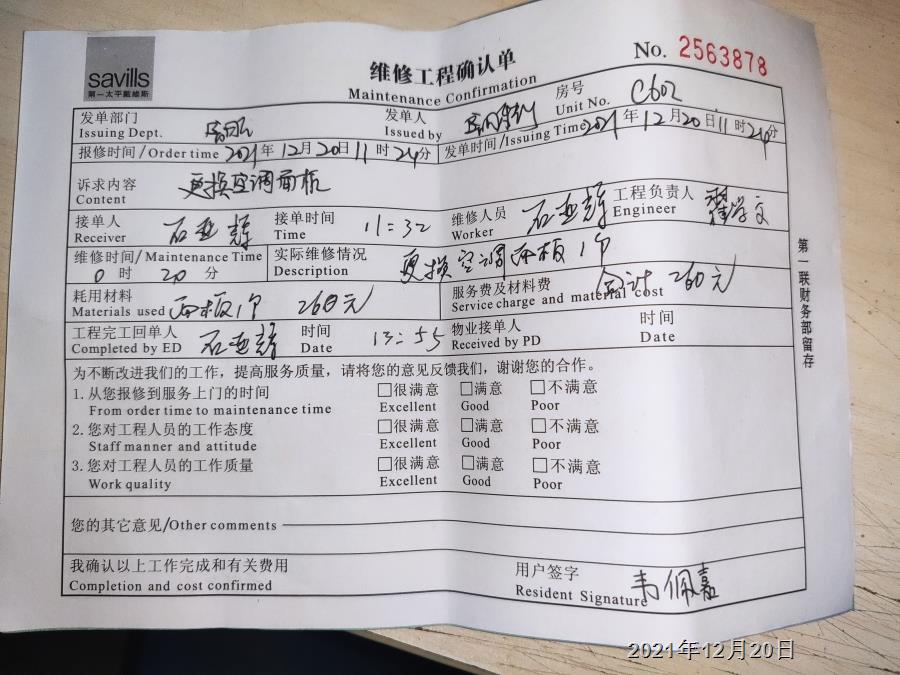 savills
第一太平戴维斯
维修工程确认单
Maintenance Confirmation
No. 2563878
发单部门 Issuing Dept.
发单人 Issued by
房号 Unit No. C602
报修时间/Order time 2021年12月20日11时24分
发单时间/Issuing Time 2021年12月20日11时24分
诉求内容 Content 更换空调面板
接单人 Receiver 石亚辉
接单时间 Time 11:32
维修人员 Worker 石亚辉
工程负责人 Engineer 翟学文
维修时间/Maintenance Time 0时20分
实际维修情况 Description 更换空调面板1个
耗用材料 Materials used 面板1个 260元
服务费及材料费 Service charge and material cost 合计260元
工程完工回单人 Completed by ED 石亚辉
时间 Date 13:55
物业接单人 Received by PD
时间 Date
为不断改进我们的工作，提高服务质量，请将您的意见反馈我们，谢谢您的合作。
1.从您报修到服务上门的时间 □很满意 □满意 □不满意
From order time to maintenance time Excellent Good Poor
2.您对工程人员的工作态度 □很满意 □满意 □不满意
Staff manner and attitude Excellent Good Poor
3.您对工程人员的工作质量 □很满意 □满意 □不满意
Work quality Excellent Good Poor
您的其它意见/Other comments
我确认以上工作完成和有关费用
Completion and cost confirmed
用户签字
Resident Signature 韦佩嘉
第一联财务部留存
2021年12月20日